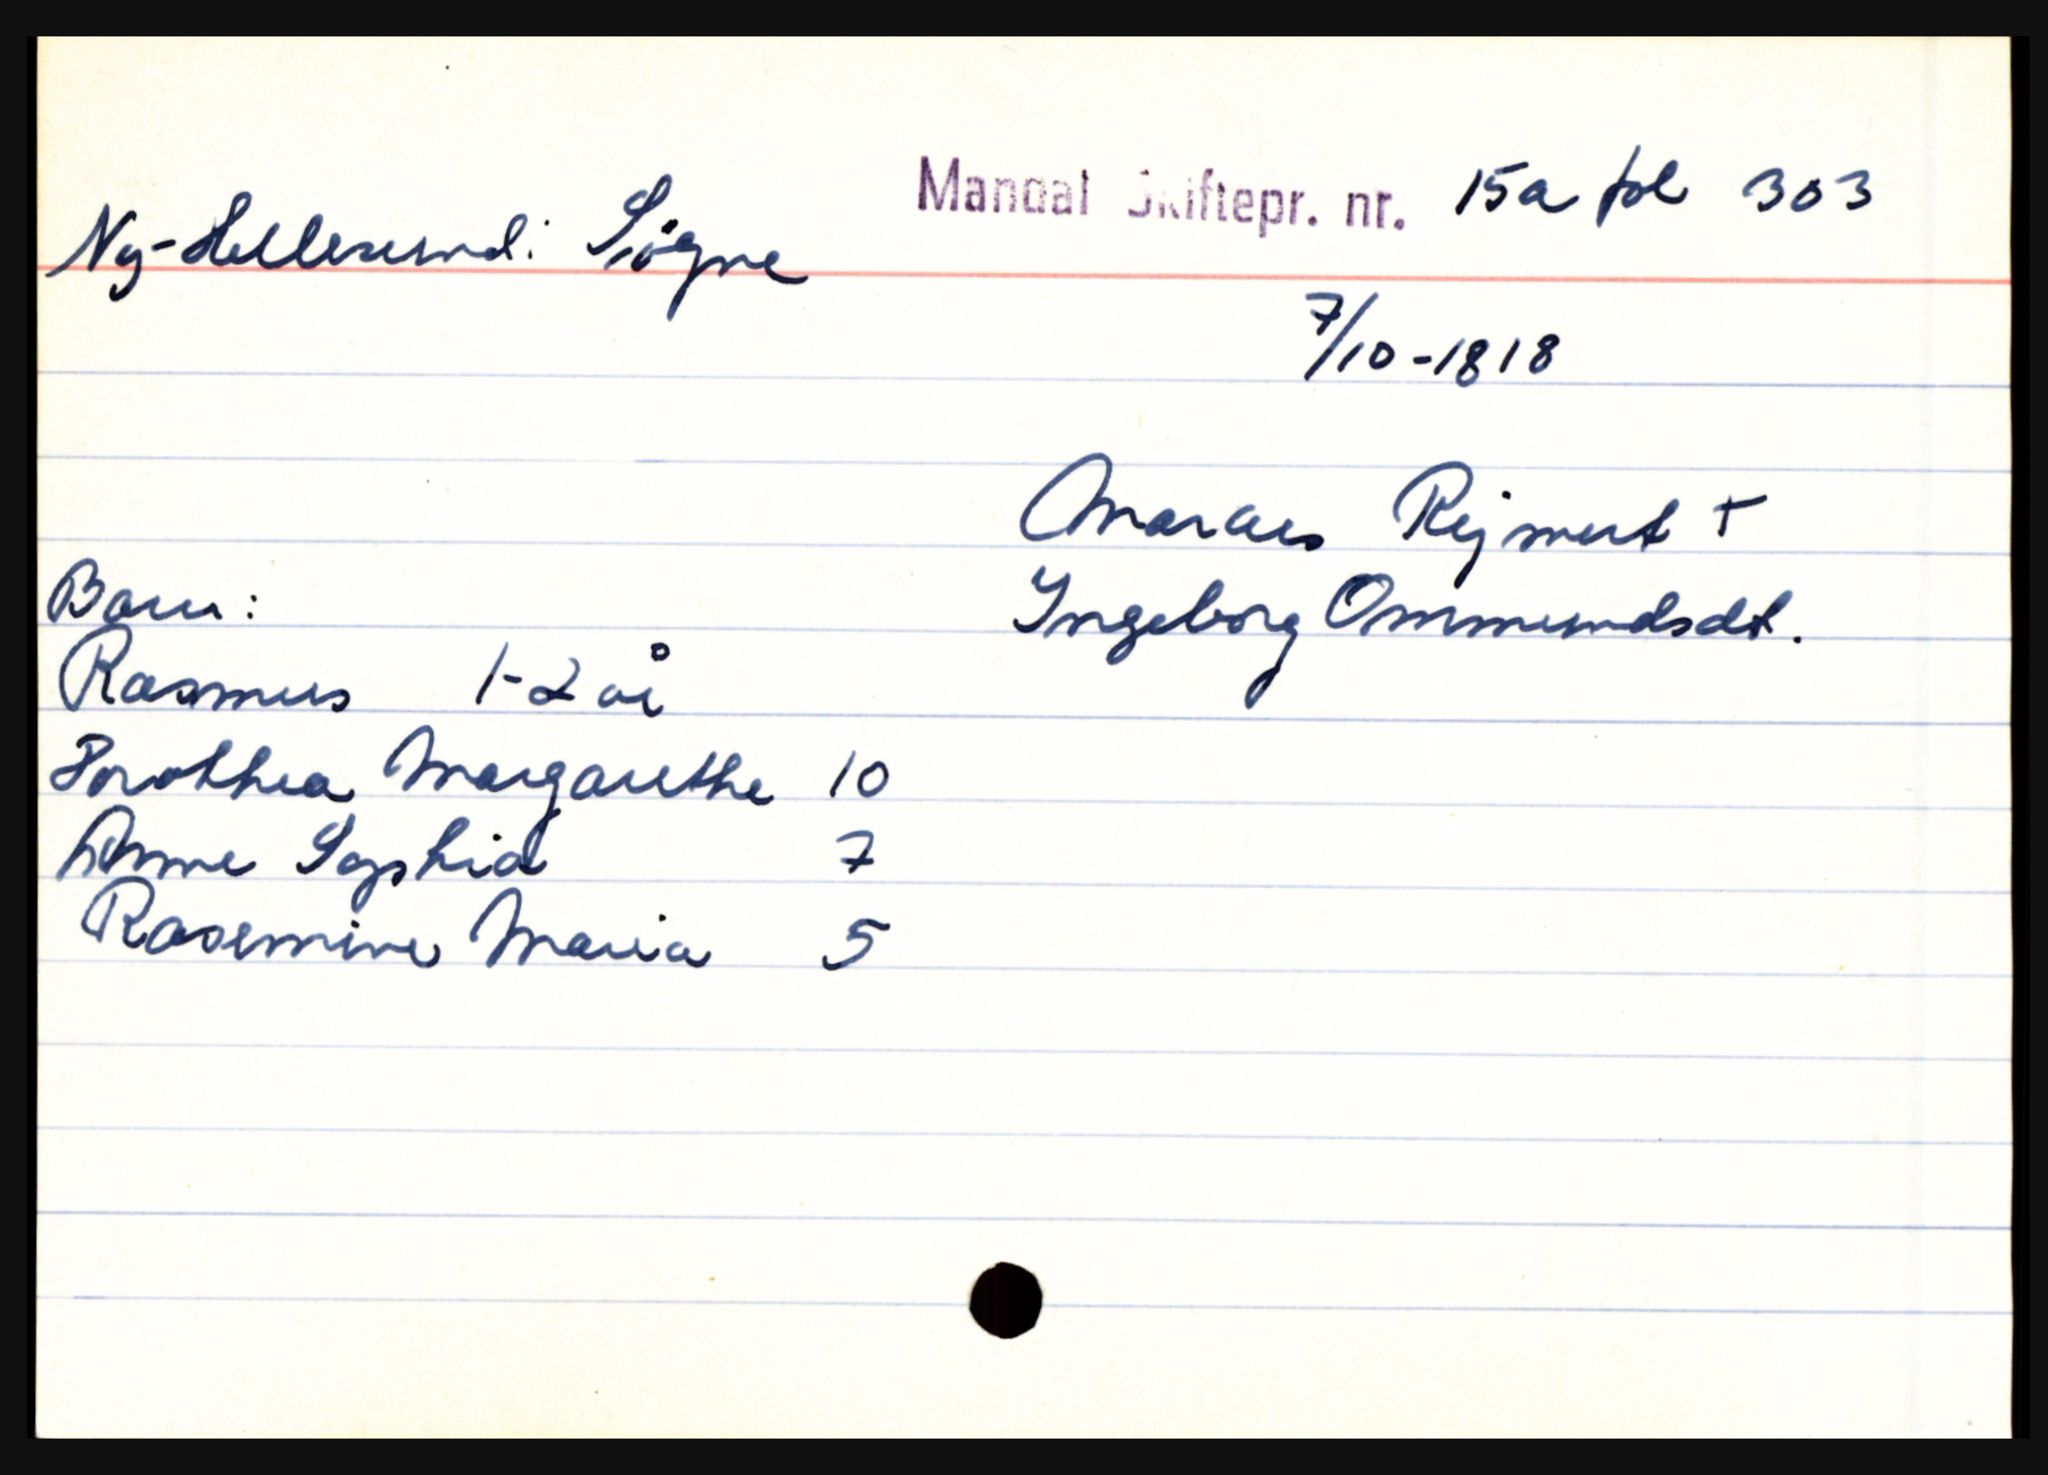 Mandal Skiftepr. nr. 15a fol 303
Ny-Hellesund i Søgne
7/10-1818
Marcus Rejmert +
Barn:
Ingeborg Ommundsdt.
Rasmus 1-2 år
Dorothea Margarethe 10
Anne Sophia 7
Rasemine Maria 5